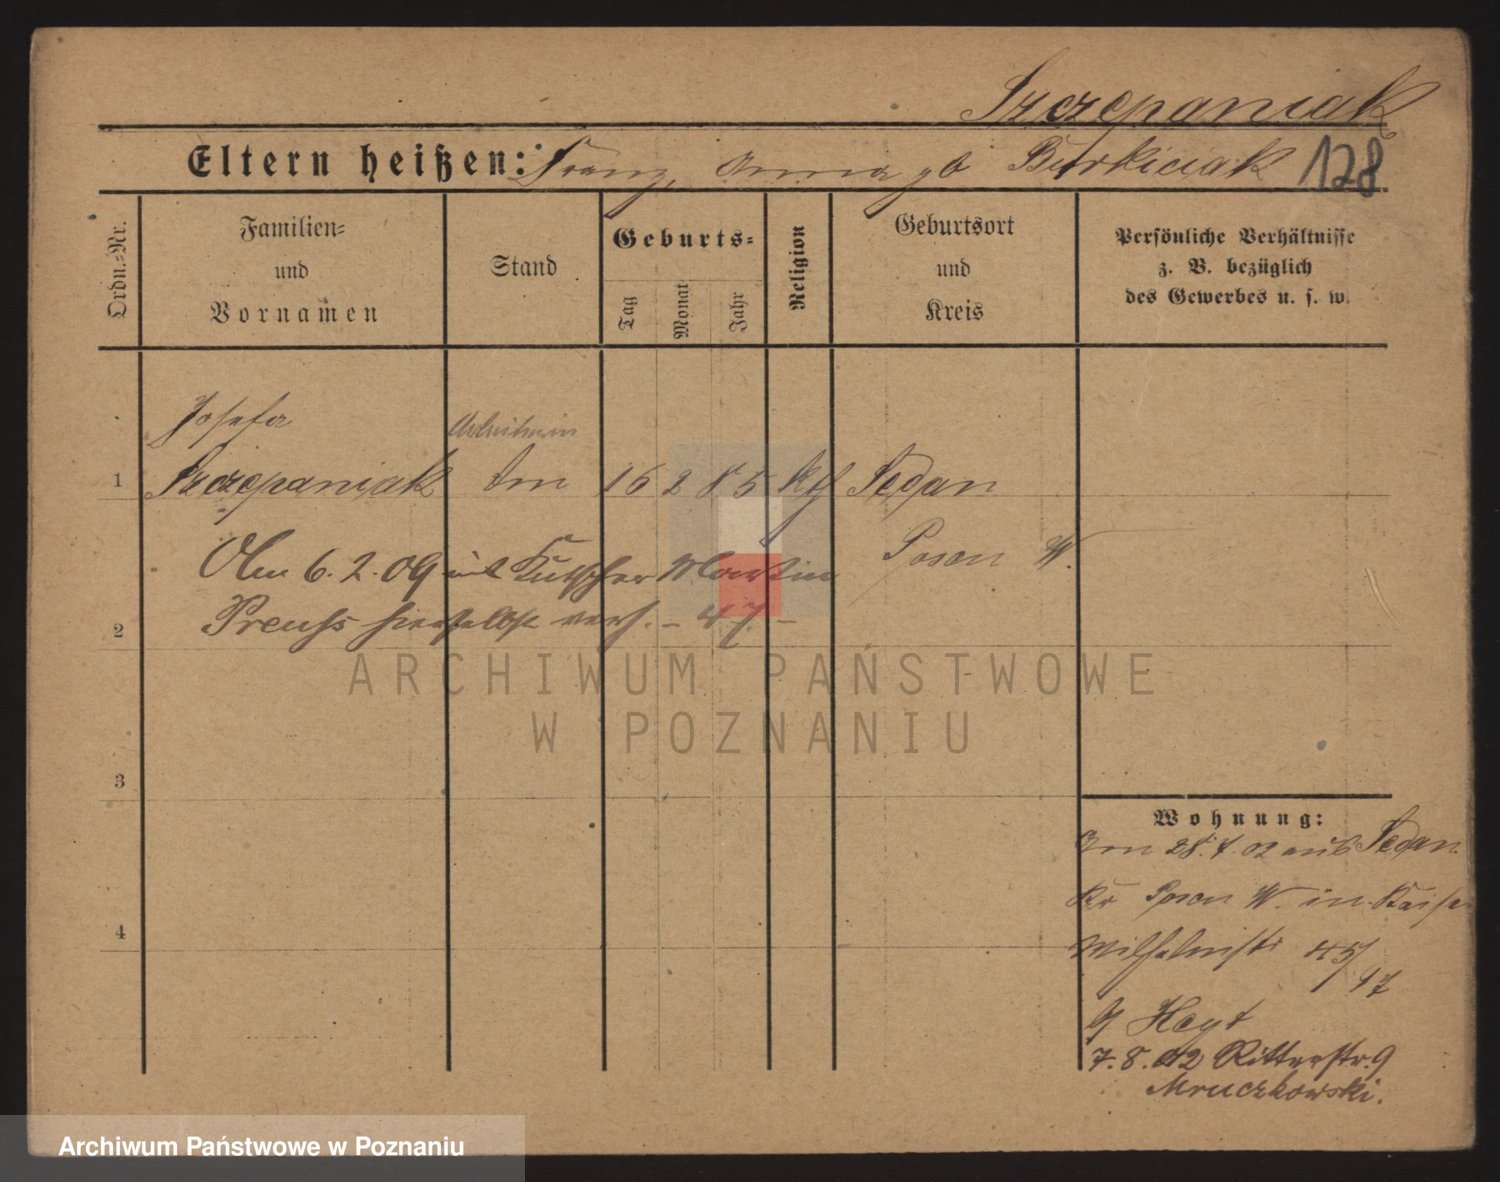 Szczepaniak
Eltern heißen: Franz, Anna gb Burkiciak 128
Ordn.-Nr.
Familien-
und
Vornamen
Stand
Geburts-
Tag
Monat
Jahr
Religion
Geburtsort
und
Kreis
Persönliche Verhältnisse
z. B. bezüglich
des Gewerbes u. s. w.
Josefa
Arbeiterin
1 Szczepaniak 16 2 85 kth Sedan
Posen W.
6.2.09 mit Kutscher Martin
2 Preuss hierselbst verh.
3
4
ARCHIWUM PAŃSTWOWE
W POZNANIU
Wohnung:
02 aus Sedan
Kr Posen W. in Kaise
Wilhelmstr 45/47
7.8.02 Ritterstr. 9
Mruczkowski.
Archiwum Państwowe w Poznaniu